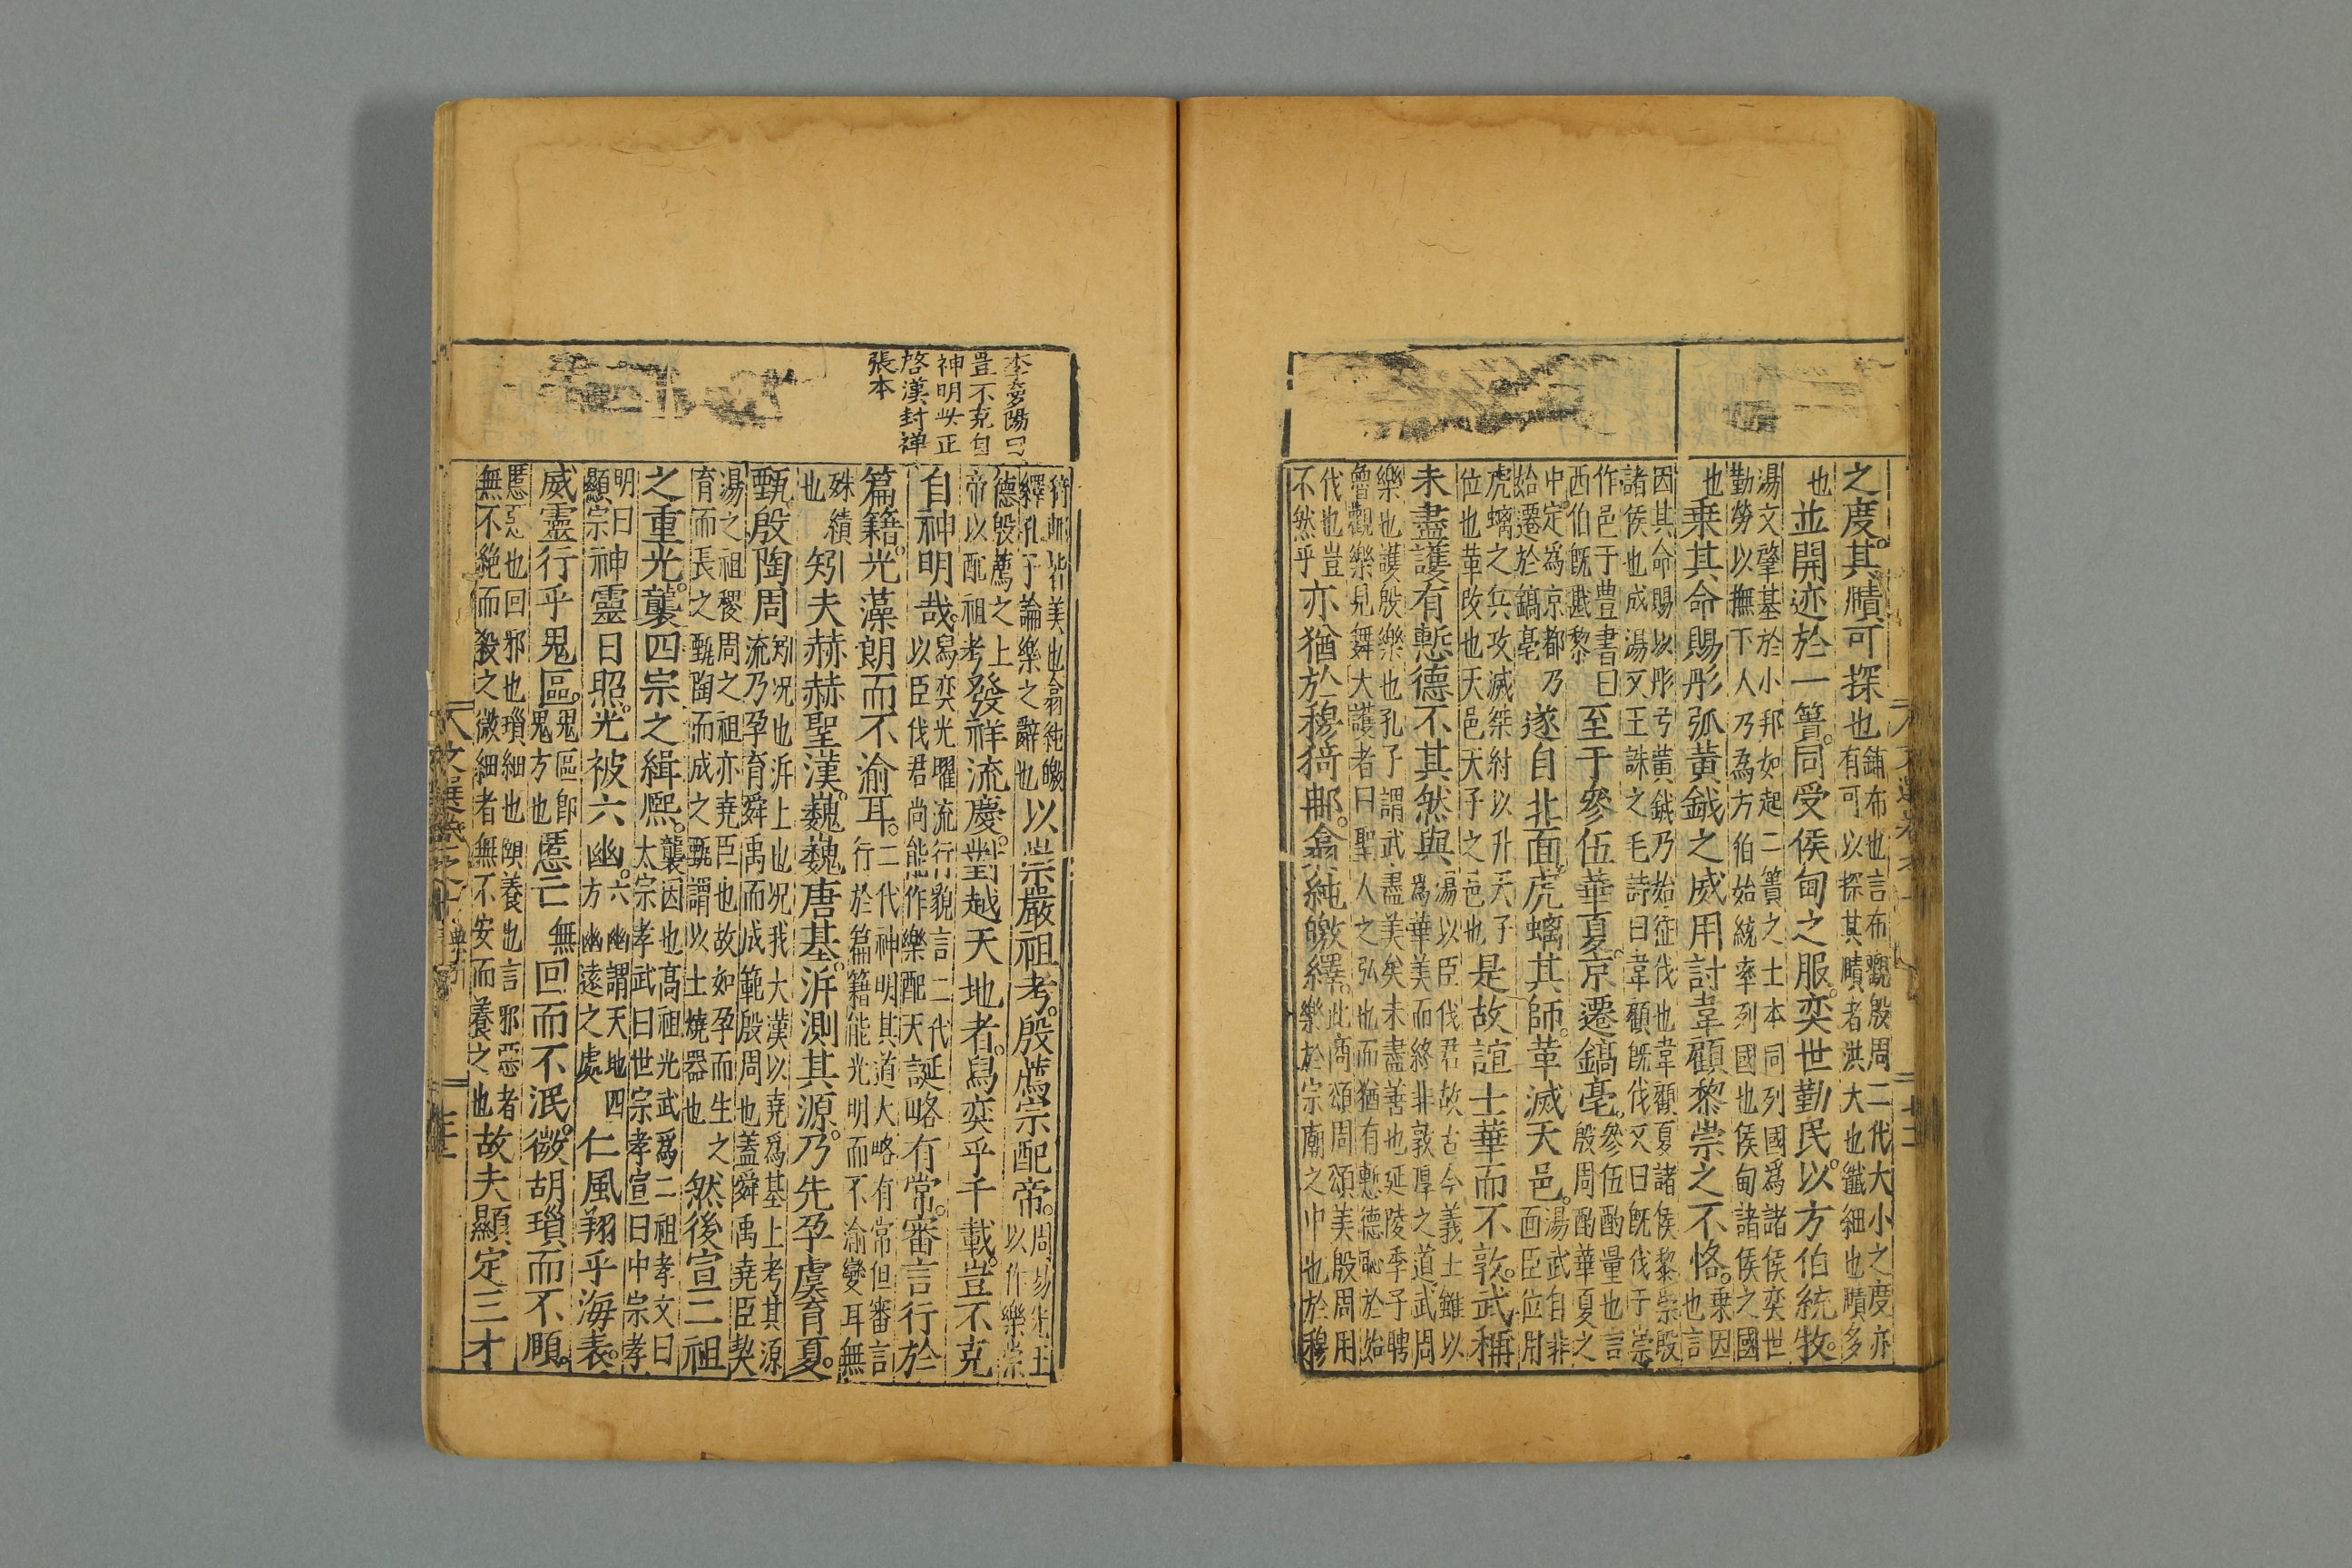 之度其賾可探也鋪布也言布覩殷周二代大小之度亦
有可以探其賾者洪大也纖細也賾多
也並開迹於一簣同受侯甸之服奕世勤民以方伯統牧
湯文肇基於小邦如起一簣之土本同列國為諸侯奕世
勤勞以撫下人乃為方伯始統率列國也侯甸諸侯之國
也乗其命賜彤弧黃鉞之威用討韋顧黎崇之不恪乗因
也言
因其命賜以彤弓黃鉞乃始征伐也韋顧夏諸侯黎崇殷
諸侯也成湯文王誅之毛詩曰韋顧既伐又曰既伐于崇
作邑于豊書曰
西伯既戡黎至于參伍華夏京遷鎬亳參伍酌量也言
殷周酌華夏之
中定為京都乃
始遷於鎬亳遂自北面虎螭其師革滅天邑湯武自非
面臣位用
虎螭之兵攻滅桀紂以升天子
位也革改也天邑天子之邑也是故誼士華而不敦武稱
未盡護有慙德不其然與湯以臣伐君故古今義士雖以
為華美而終非敦厚之道武周
樂也護殷樂也孔子謂武盡美矣未盡善也延陵季子聘
魯觀樂見舞大護者曰聖人之弘也而猶有慙德恥於始
代也豈
不然乎亦猶於穆猗那翕純皦繹此商頌周頌美殷周用
樂於宗廟之中也於穆
李夢陽曰
豈不克自
神明此正
啓漢封禅
張本
猗那皆美也翕純皦
繹孔子論樂之辭也以崇嚴祖考殷薦宗配帝周易先王
以作樂崇
德殷薦之上
帝以配祖考發祥流慶對越天地者舄奕乎千載豈不克
自神明哉舄奕光曜流行貌言二代
以臣伐君尚能作樂配天誕略有常審言行於
篇籍光藻朗而不渝耳二代神明其道大略有常但審言
行於篇籍能光明而不渝變耳無
殊績
也矧夫赫赫聖漢巍巍唐基泝測其源乃先孕虞育夏
甄殷陶周矧况也泝上也况我大漢以堯為基上考其源
流乃孕育舜禹而成範殷周也蓋舜禹堯臣契
湯之祖稷周之祖亦堯臣也故如孕而生之
育而長之甄陶而成之甄謂以土燒器也然後宣二祖
之重光襲四宗之緝熈襲因也髙祖光武為二祖孝文曰
太宗孝武曰世宗孝宣曰中宗孝
明曰
顯宗神靈日照光被六幽六幽謂天地四
方幽遠之處仁風翔乎海表
威靈行乎鬼區鬼區即
鬼方也慝亡無回而不泯微胡瑣而不頤
慝惡也回邪也瑣細也頤養也言邪惡者
無不絶而殺之微細者無不安而養之也故夫顯定三才